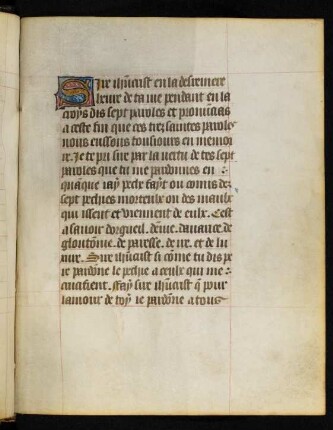 Sire ihucrist en la desreniere
heure de ta vie pendant en la
croys dis sept paroles et pronuncias
a ceste fin que ces tres saintes parole
nous eussons tousiours en memoi
re. Je te pri sire par la vertu de tes sept
paroles que tu me pardonnes en
quanque iay peche fayt ou comis des
sept pechies morteulx ou des maulx
qui issent et viennent de eulx. Cest
a sauoir dorgueil. denuie. dauarice. de
gloutonie. de paresse. de ire. et de lu
xure. Sire ihucrist si come tu dis pe
re pardone le pechie a ceulx qui me
crucifient. Fay sire ihucrist q pour
lamour de toy ie pardone a tous